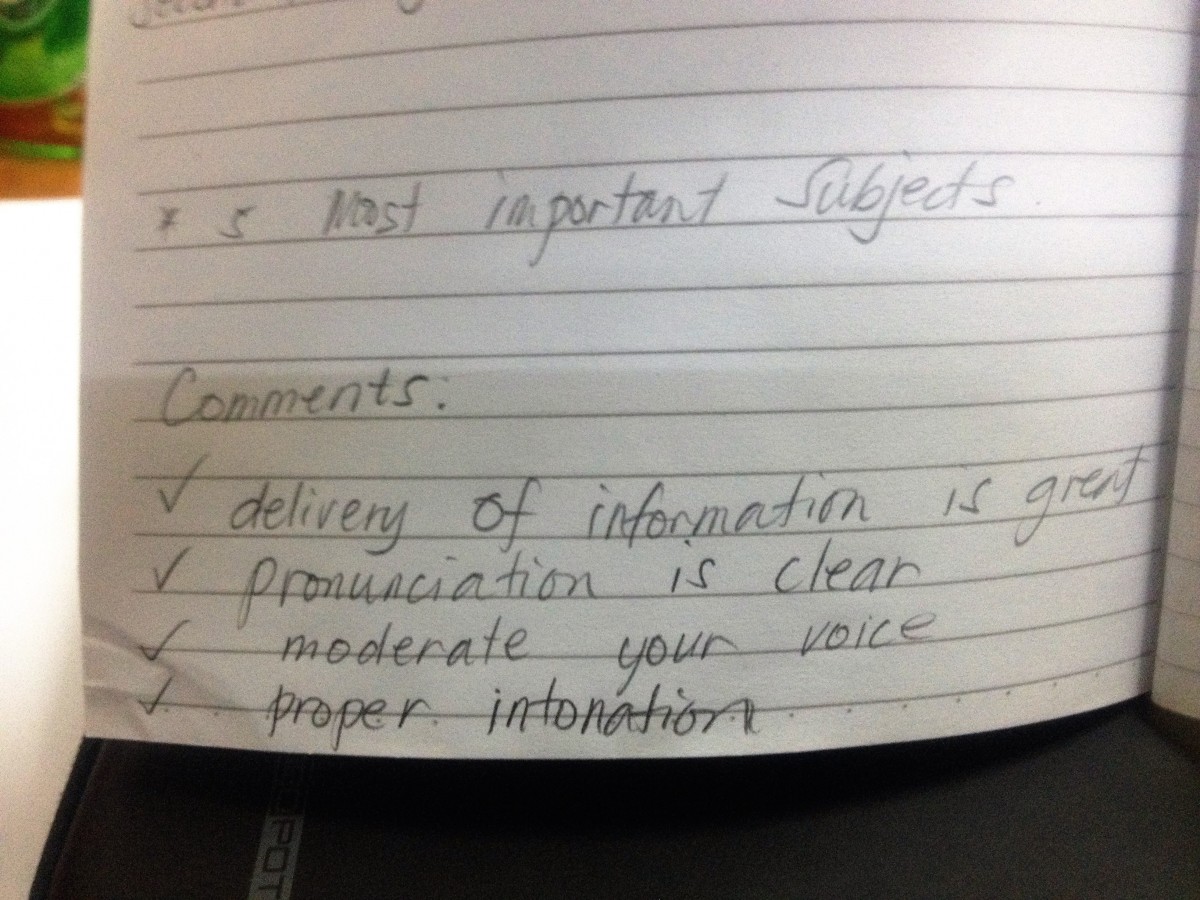 * 5 Most important Subjects.
Comments:
✓ delivery of information is great
✓ pronunciation is clear
✓ moderate your voice
✓ proper intonation